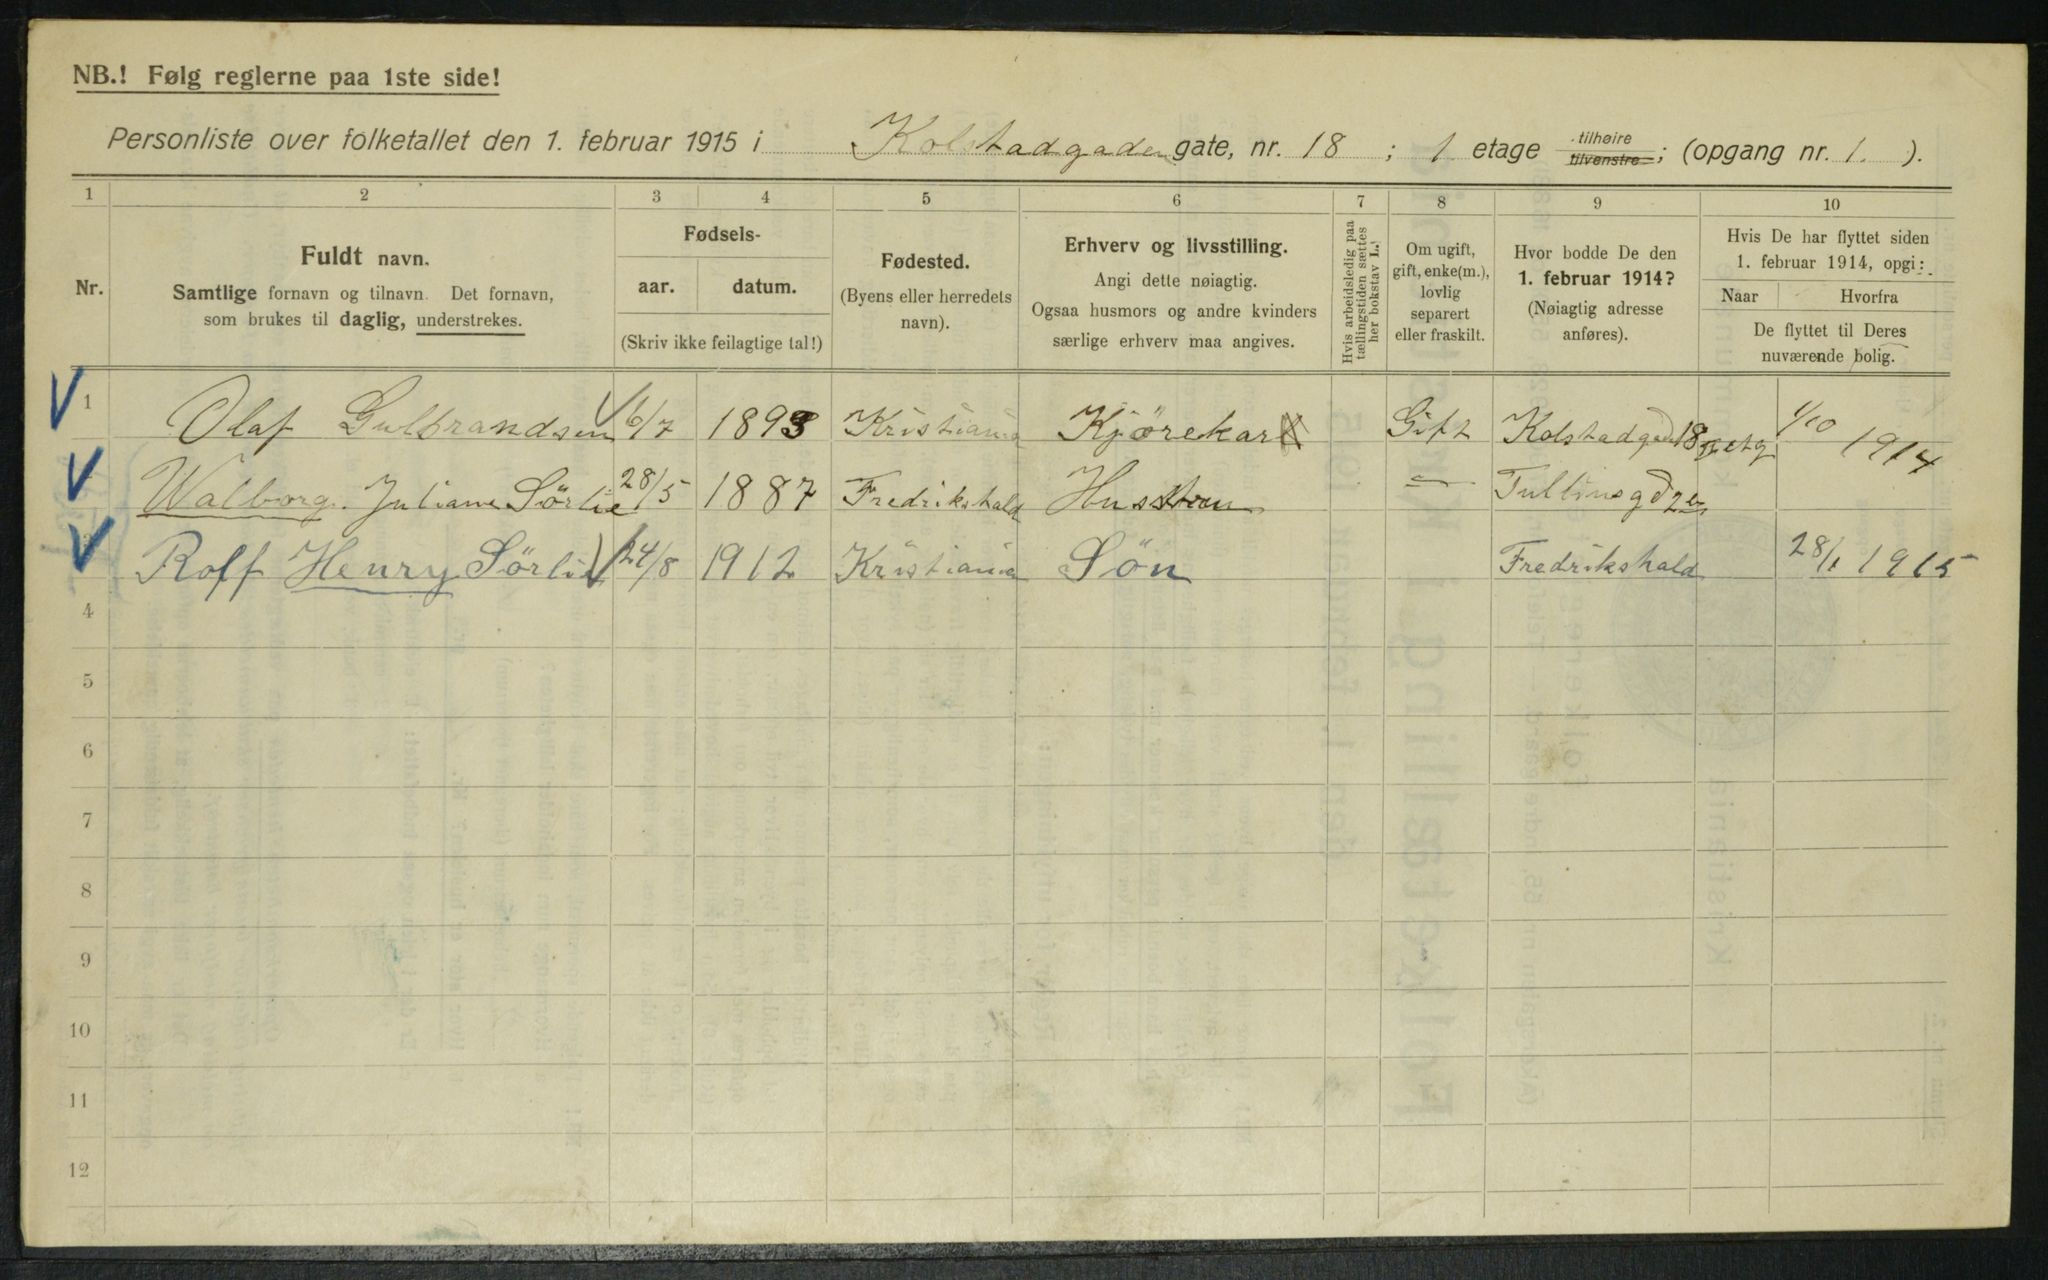 NB.! Følg reglerne paa 1ste side!
Personliste over folketallet den 1. februar 1915 i Kolstadgaden gate, nr. 18 ; 1 etage tilhøire tilvenstre; (opgang nr. 1. ).
1 2 3 4 5 6 7 8 9 10
Nr.
Fuldt navn.
Samtlige fornavn og tilnavn. Det fornavn,
som brukes til daglig, understrekes.
Fødsels-
aar. datum.
(Skriv ikke feilagtige tal!)
Fødested.
(Byens eller herredets
navn).
Erhverv og livsstilling.
Angi dette nøiagtig.
Ogsaa husmors og andre kvinders
særlige erhverv maa angives.
Hvis arbeidsledig paa
tællingstiden sættes
her bokstav L.
Om ugift,
gift, enke(m.),
lovlig
separert
eller fraskilt.
Hvor bodde De den
1. februar 1914?
(Nøiagtig adresse
anføres).
Hvis De har flyttet siden
1. februar 1914, opgi:
Naar Hvorfra
De flyttet til Deres
nuværende bolig.
1 Olaf Gulbrandsen 6/7 1893 Kristiania Kjörekar Gift Kolstadgad 18 etg 1/10 1914
Walborg. Juliane Sörlie 28/5 1887 Fredrikshald Hustru — Tullinsgd
Rolf Henry Sörlie 24/8 1912 Kristiania Sön Fredrikshald 28/1 1915
4
5
6
7
8
9
10
11
12